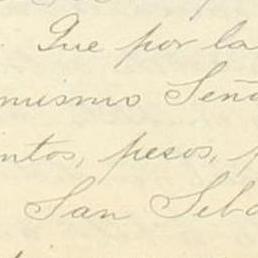 Que por la
mismo Seño
ntos, pesos,
San Seba